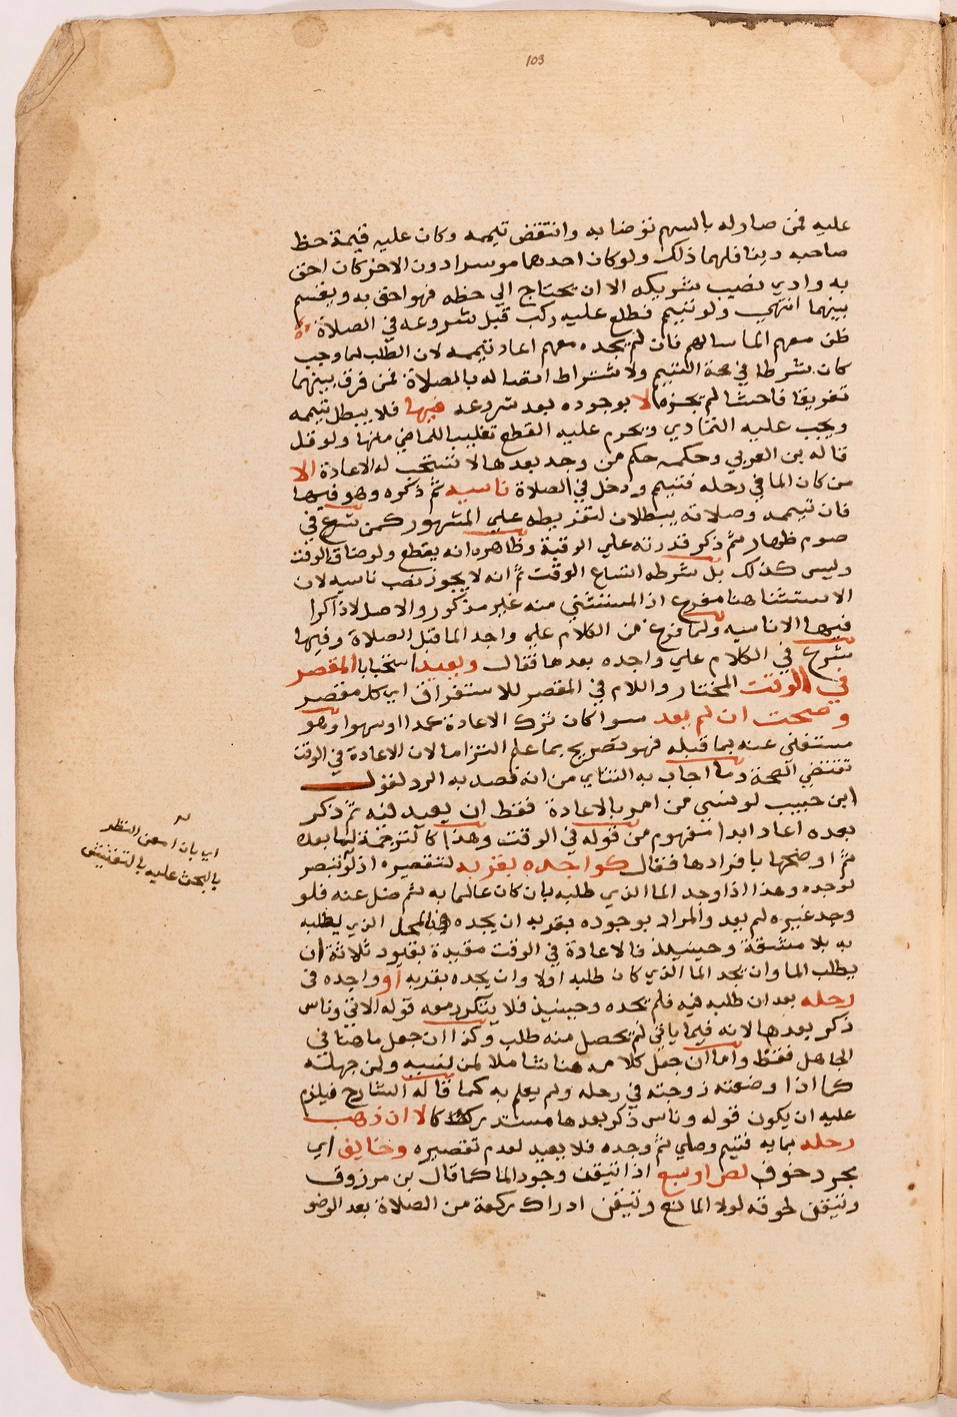 103
عليه فمن صار له بالسهم توضا به وانتقض تيممه وكان عليه قيمة حظ
صاحبه دينا فلهما ذلك ولو كان احدهما موسرا دون الاخر كان احق
به وادي نصيب شريكه الا ان يحتاج الي حظه فهو احق به ويقسم
بينهما انتهي ولو تيمم فطلع عليه ركب قبل شروعه في الصلاة
ظن معهم الما سالهم فان لم يجده معهم اعاد تيممه لان الطلب لما وجب
كان شرطا في صحة التيمم ولاشتراط اتصاله بالصلاة فمن فرق بينهما
تفريقا فاحشا لم يجزه لا بوجوده بعد شروعه فيها فلا يبطل تيممه
ويجب عليه التمادي ويحرم عليه القطع تغليبا للماضي منها ولو قل
قاله بن العربي وحكمه حكم من وجد بعدها لا تستحب له الاعادة الا
من كان الما في رحله فتيمم ودخل في الصلاة ناسيه ثم ذكره وهو فيها
فان تيممه وصلاته يبطلان لتفريطه علي المشهور كمن شرع في
صوم ظهار ثم ذكر قدرته علي الرقبة وظاهره انه يقطع ولو ضاق الوقت
وليس كذلك بل شرطه اتساع الوقت ثم انه لا يجوز نصب ناسيه لان
الاستثنا هنا مفرغ اذ المستثني منه غير مذكور والاصل لا ذاكرا
فيها الا ناسيه ولما فرغ من الكلام علي واجد الما قبل الصلاة وفيها
شرع في الكلام علي واجده بعدها فقال ويعيد استحبابا المقصر
في الوقت المختار واللام في المقصر للاستغراق اي كل مقصر
وصحت ان لم يعد سوا كان ترك الاعادة عمدا او سهوا وهو
مستغني عنه بما قبله فهو تصريح بما علم التزاما لان الاعادة في الوقت
تقتضي الصحة وما اجاب به التتاي من انه قصد به الرد لقول
ابن حبيب لو نسي من امر بالاعادة فقط ان يعيد لنه ثم ذكر
بعده اعاد ابدا مفهوم من قوله في الوقت وهذا كالترجمة لما بعده
ثم اوضحها بافرادها فقال كواجده بقربه لتقصيره اذ لو تبصر
لوجده وهذا اذا وجد الما الذي طلبه بان كان عالما به ثم ضل عنه فلو
وجد غيره لم يعد والمراد بوجوده بقربه ان يجده في المحل الذي يطلبه
به بلا مشقة وحينيذ فالاعادة في الوقت مقيدة بقيود ثلاثة ان
يطلب الما وان يجد الما الذي كان طلبه اولا وان يجده بقربه او واجده في
رحله بعد ان طلبه فيه فلم يجده وحينيذ فلا يتكرر معه قوله الاتي وناس
ذكر بعدها لانه فيما ياتي لم يحصل منه طلب وكذا ان جعل ما هنا في
الجاهل فقط واما ان جعل كلامه هنا شاملا لمن نسيه ولمن جهله
كما اذا وضعته زوجته في رحله ولم يعلم به كما قاله الشارح فيلزم
عليه ان يكون قوله وناس ذكر بعدها مستدركا لا ان ذهب
رحله بمايه فتيمم وصلي ثم وجده فلا يعيد لعدم تقصيره وخايف اي
مجرد خوف لص او سبع اذا تيقن وجود الما كما قال بن مرزوق
وتيقن لحوقه لولا المانع وتيقن ادراك ركعة من الصلاة بعد الوضو
اي بان امعن النظر
بالبحث عليه بالتفتيش